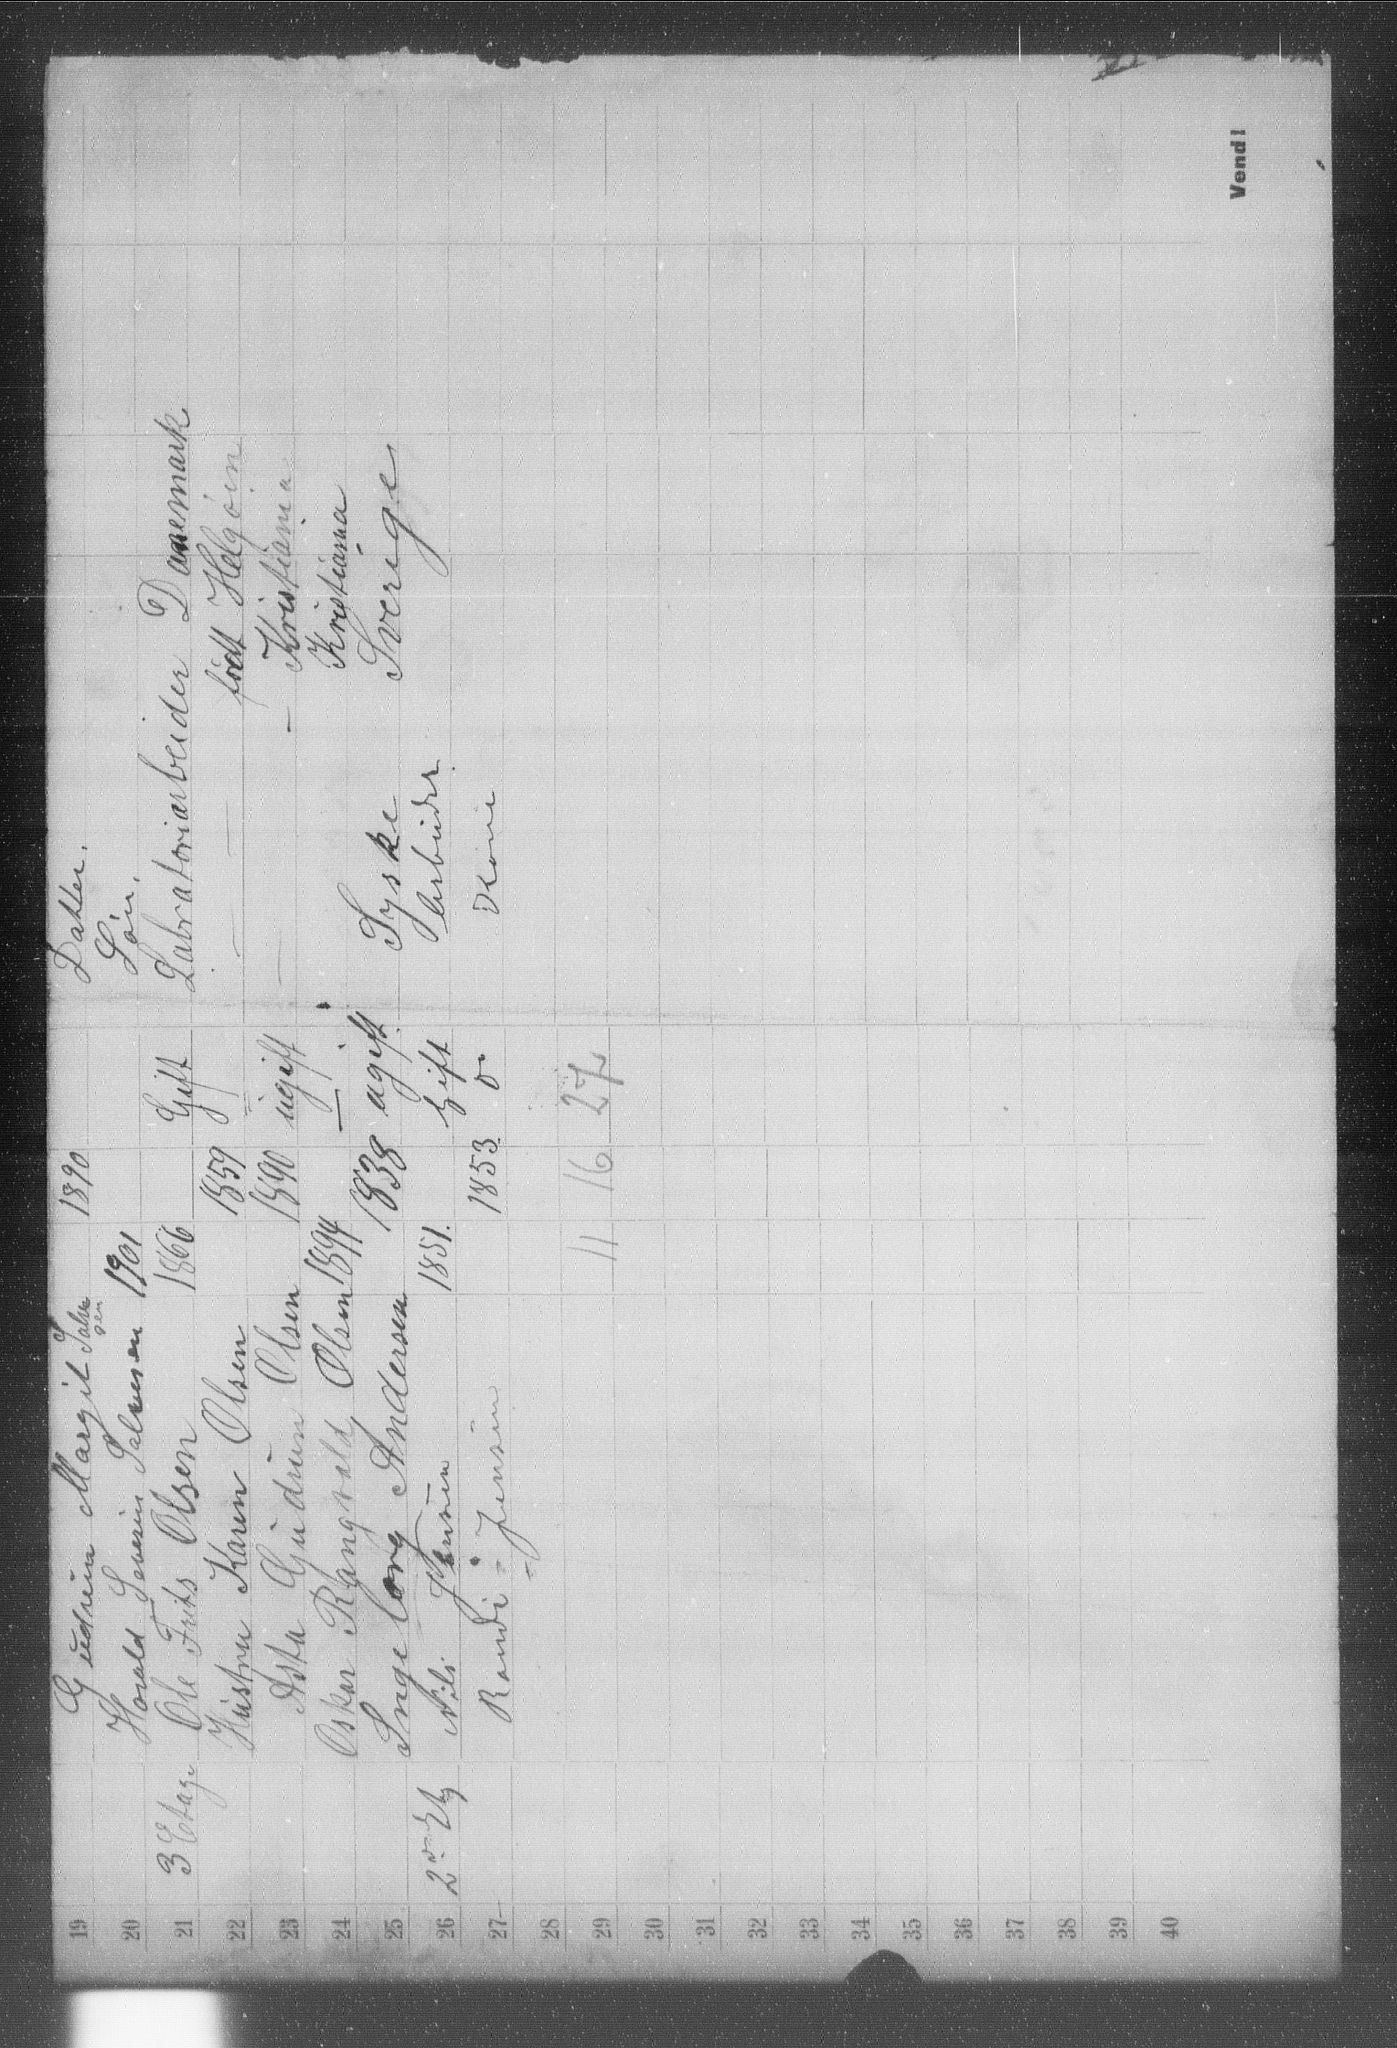 19 Gudrun Margit Salve
sen 1890 Datter.
20 Harald Severin Salvesen 1901 Søn.
21 3 Etage Ole Frits Olsen 1866 Gift Labratoriarbeider Danemark
22 Hustru Karen Olsen 1859 — — født Helgøin
23 Asta Gudrun Olsen 1890 ugift — — Kristiania
24 Oskar Rangvald Olsen 1894 — Kristiania
25 Ingeborg Andersen 1838 ugift Syske Sverige
26 2den Etg Nils Jensen 1851. Gift Arbeider
27 Randi Jensen 1853
28
29 11 16 27
30
31
32
33
34
35
36
37
38
39
40
Vend!